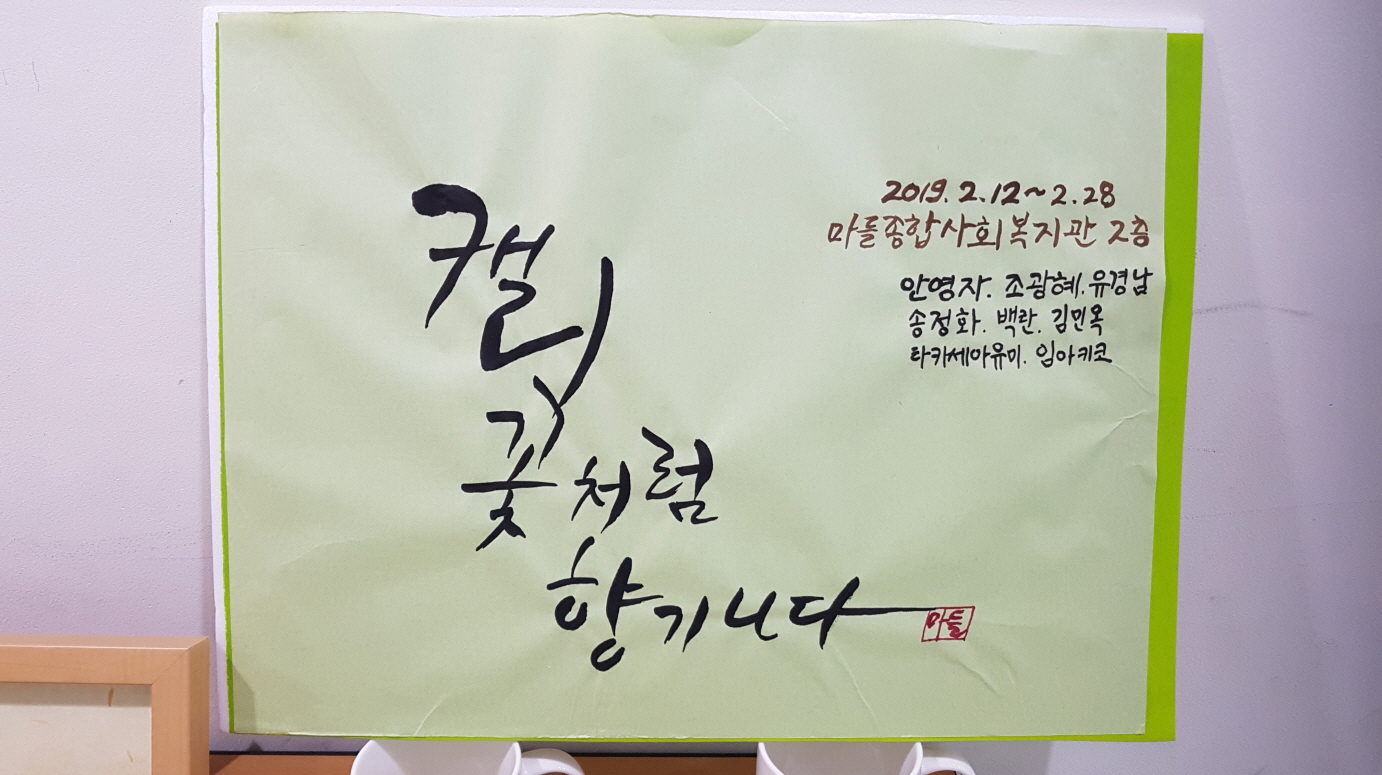 캘리
꽃처럼
향기니다
마들
2019. 2. 12 ~ 2. 28
마들종합사회복지관 2층
안영자. 조광혜. 유경남
송정화. 백란. 김민옥
타카세아유미. 임아키코